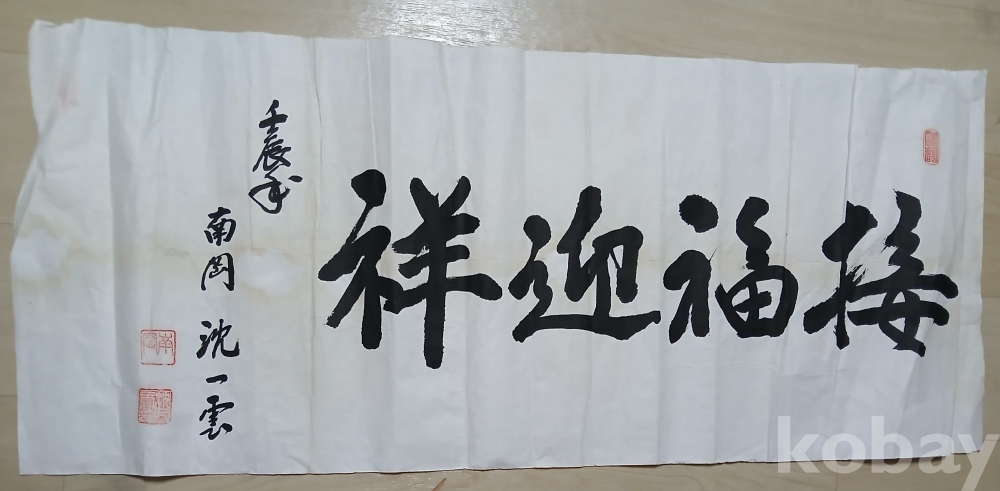 接福迎祥
壬辰季
南岡 沈一雲
南岡
kobay